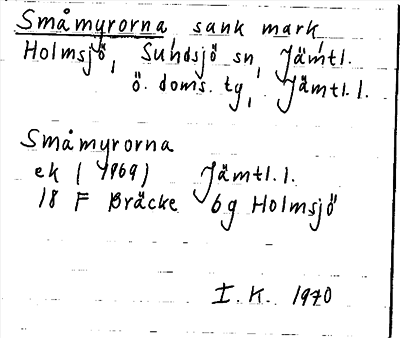 Småmyrorna, sank mark,
Holmsjö, Sundsjö sn, Jämtl.
ö. doms. tg, Jämtl. l.
Småmyrorna
ek (1969) Jämtl. l.
18 F Bräcke 6g Holmsjö
I. K. 1970